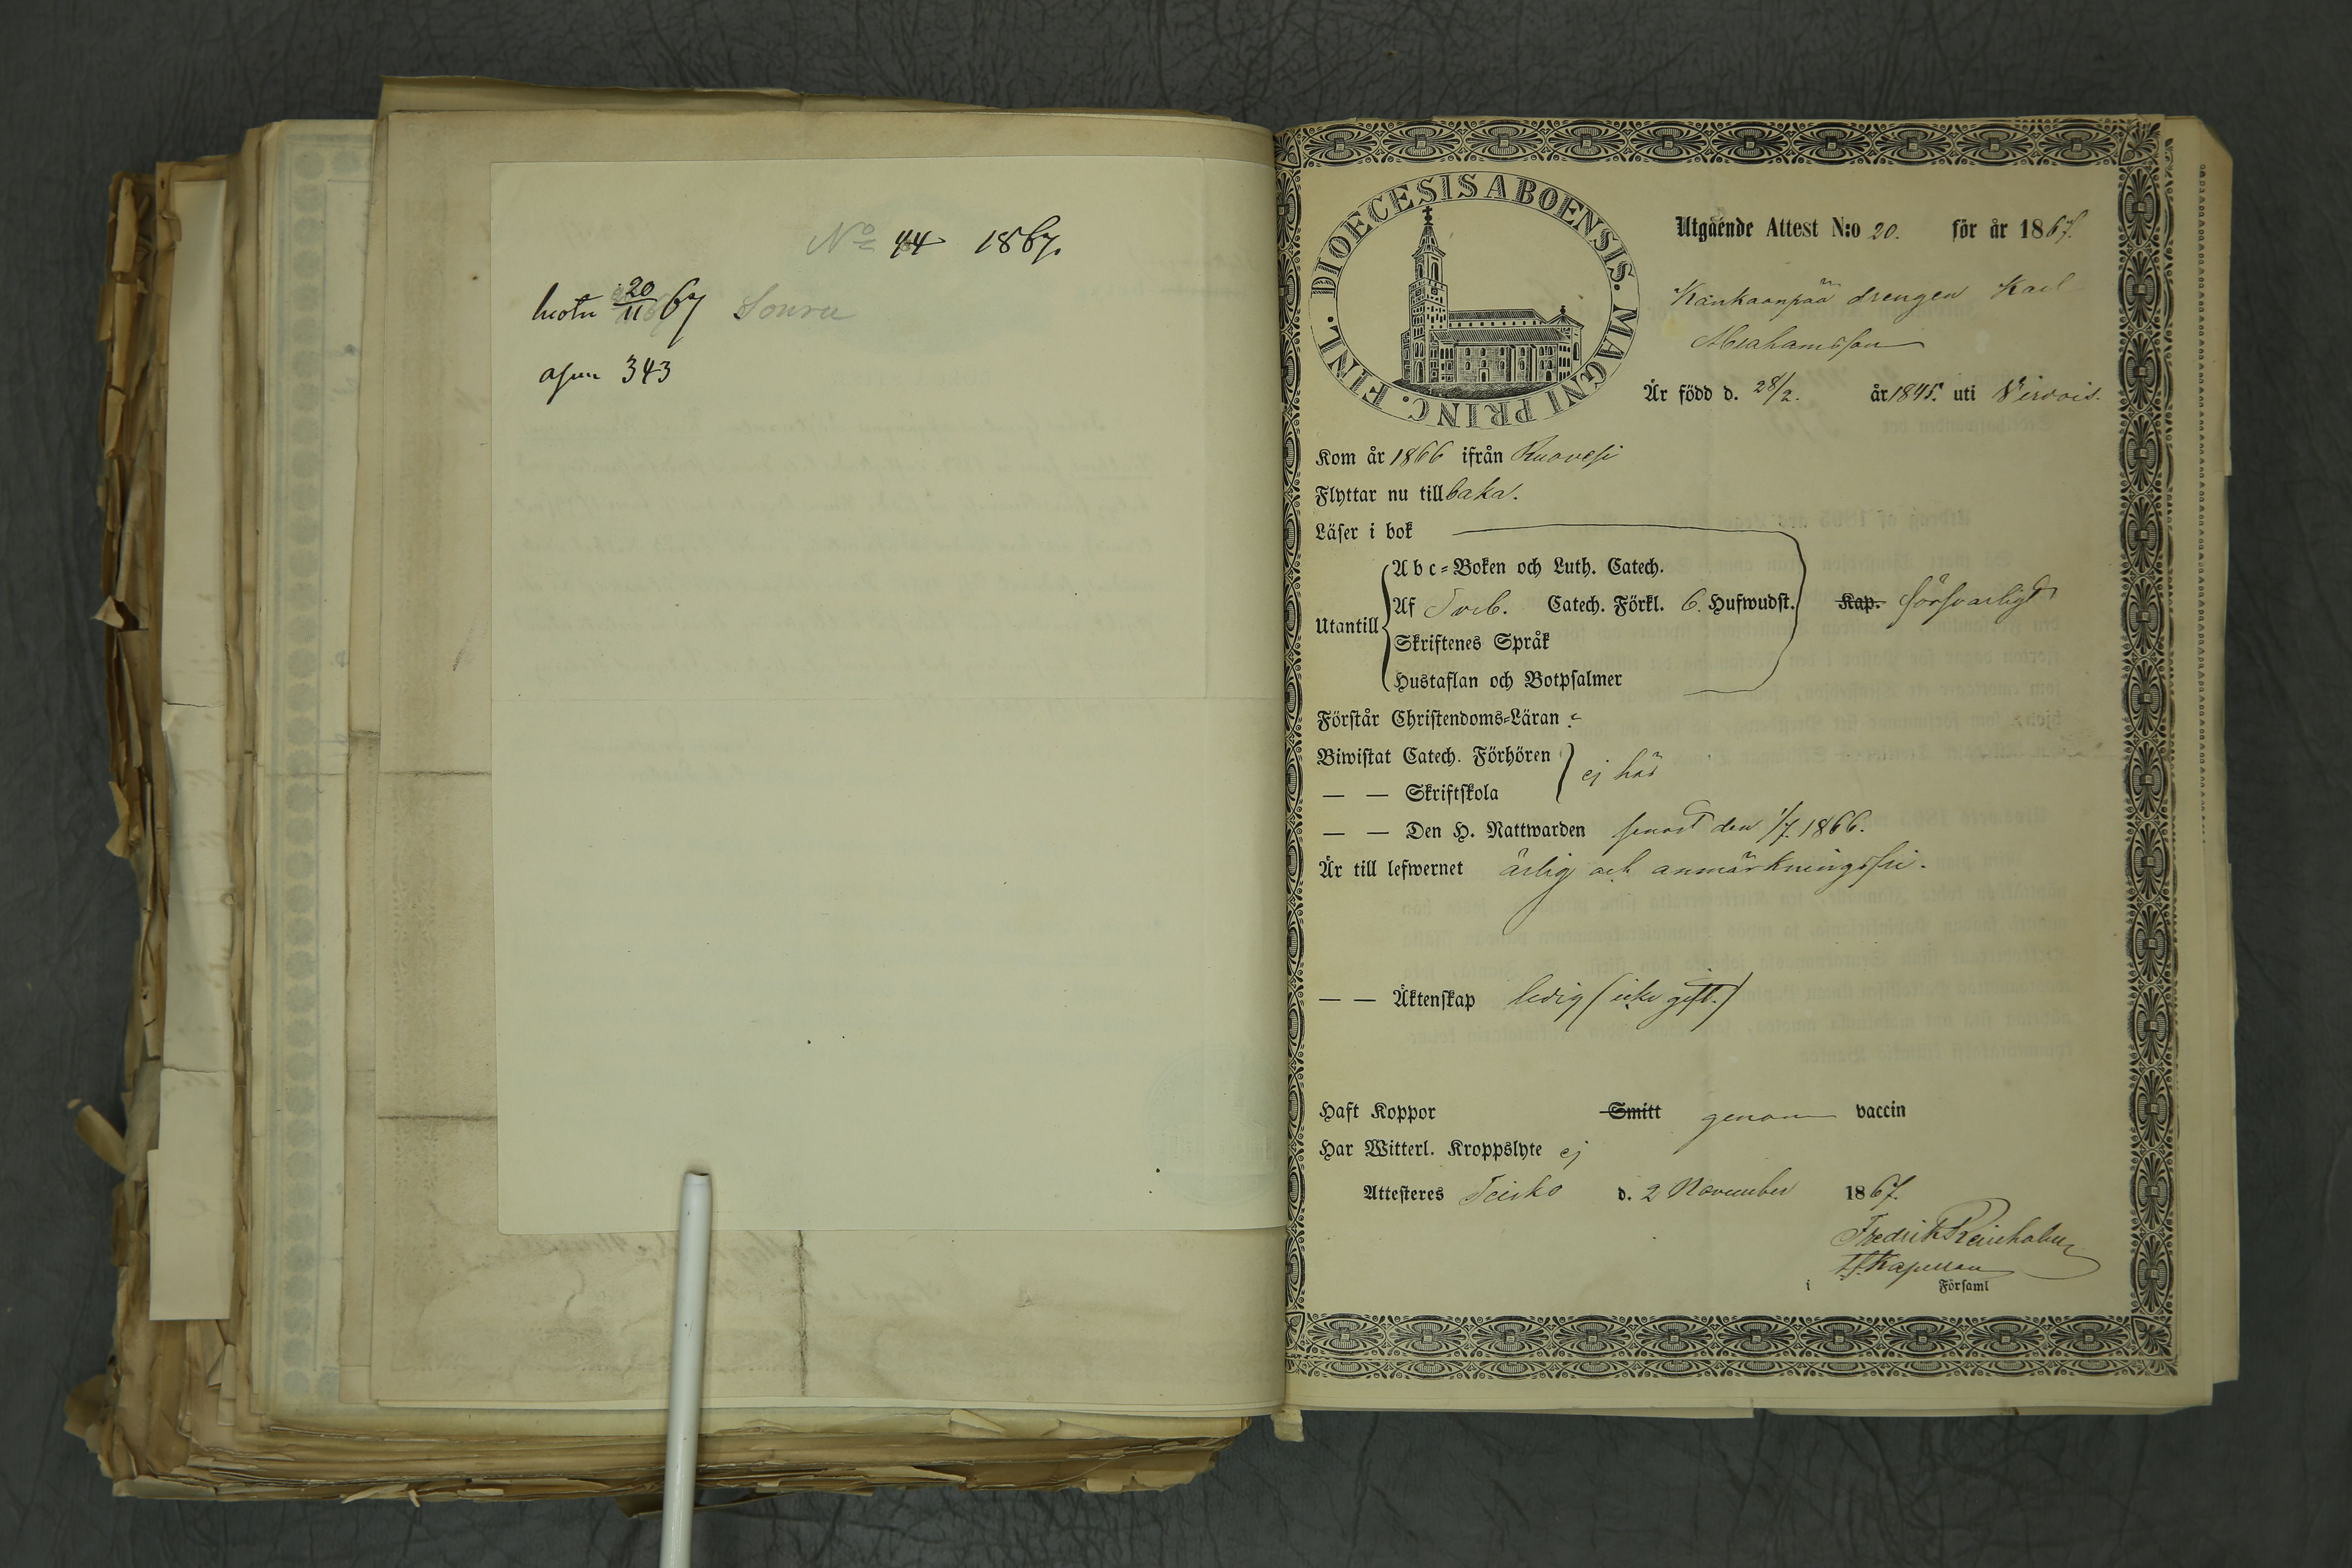 No 44 1867.
20/11 67 Souru
343
DIOECESIS ABOENSIS. MAGNI PRINC. FINL.
Utgående Attest N:o 20. för år 1867.
Kankaanpää drengen Karl
Abrahamsson
Är född d. 28/2. år 1845. uti Virdois.
Kom år 1866 ifrån Ruovesi
Flyttar nu till baka.
Läser i bok
Utantill
Abc-Boken och Luth. Catech.
Af Sveb. Catech. Förkl. 6. Hufwudst. Kap. försvarligt
Skriftenes Språk
Hustaflan och Botpsalmer
Förstår Christendoms-Läran
Biwistat Catech. Förhören
ej här
— — Skriftskola
— — Den H. Nattwarden senast den 1/7 1866.
Är till lefwernet ärlig och anmärkningsfri.
— — Äktenskap ledig (icke gift.)
Haft Koppor Smitt genom vaccin
Har Witterl. Kroppslyte ej
Attesteres Teisko d. 2 November 1867.
Fredrik
Kapellan
i Församl